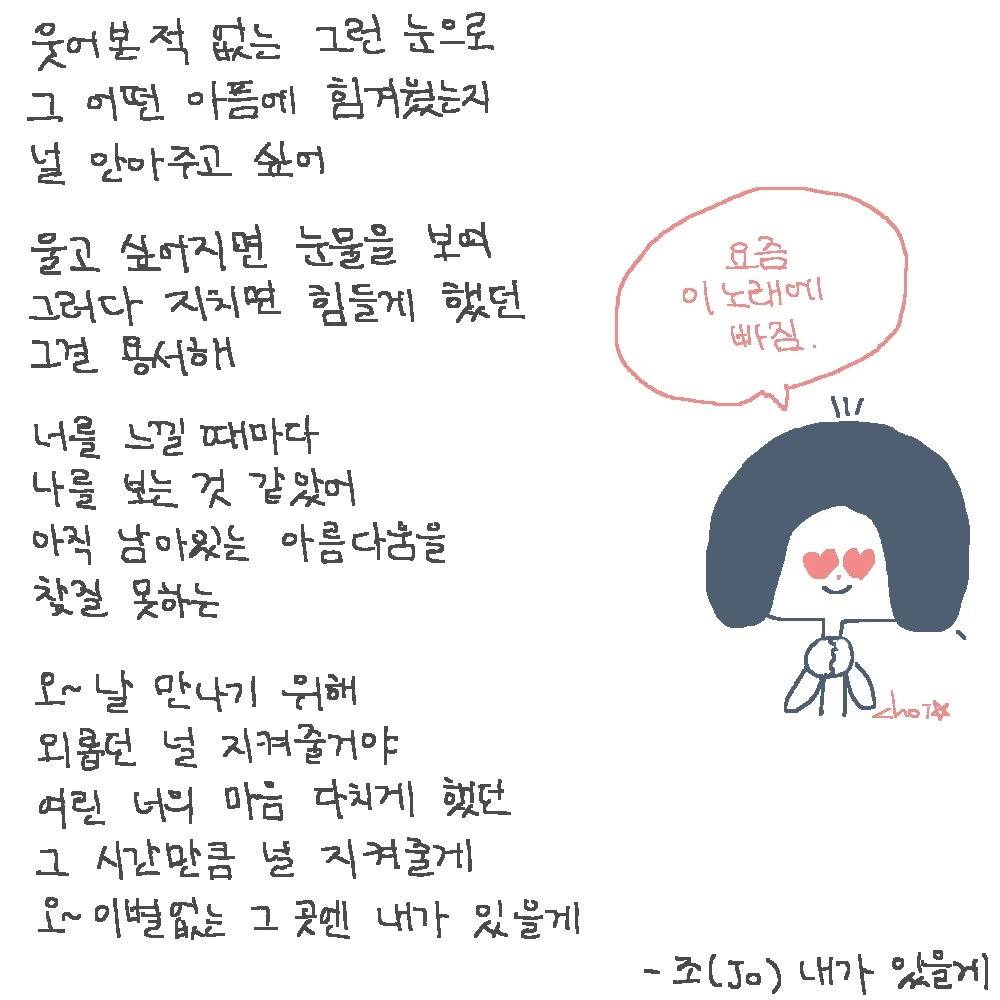 웃어본 적 없는 그런 눈으로
그 어떤 아픔에 힘겨웠는지
널 안아주고 싶어
울고 싶어지면 눈물을 보여
그러다 지치면 힘들게 했던
그걸 용서해
너를 느낄 때마다
나를 보는 것 같았어
아직 남아있는 아름다움을
찾질 못하는
오~ 날 만나기 위해
외롭던 널 지켜줄거야
여린 너의 마음 다치게 했던
그 시간만큼 널 지켜줄게
오~ 이별없는 그 곳엔 내가 있을게
- 조(Jo) 내가 있을게
요즘
이 노래에
빠짐.
choi☆